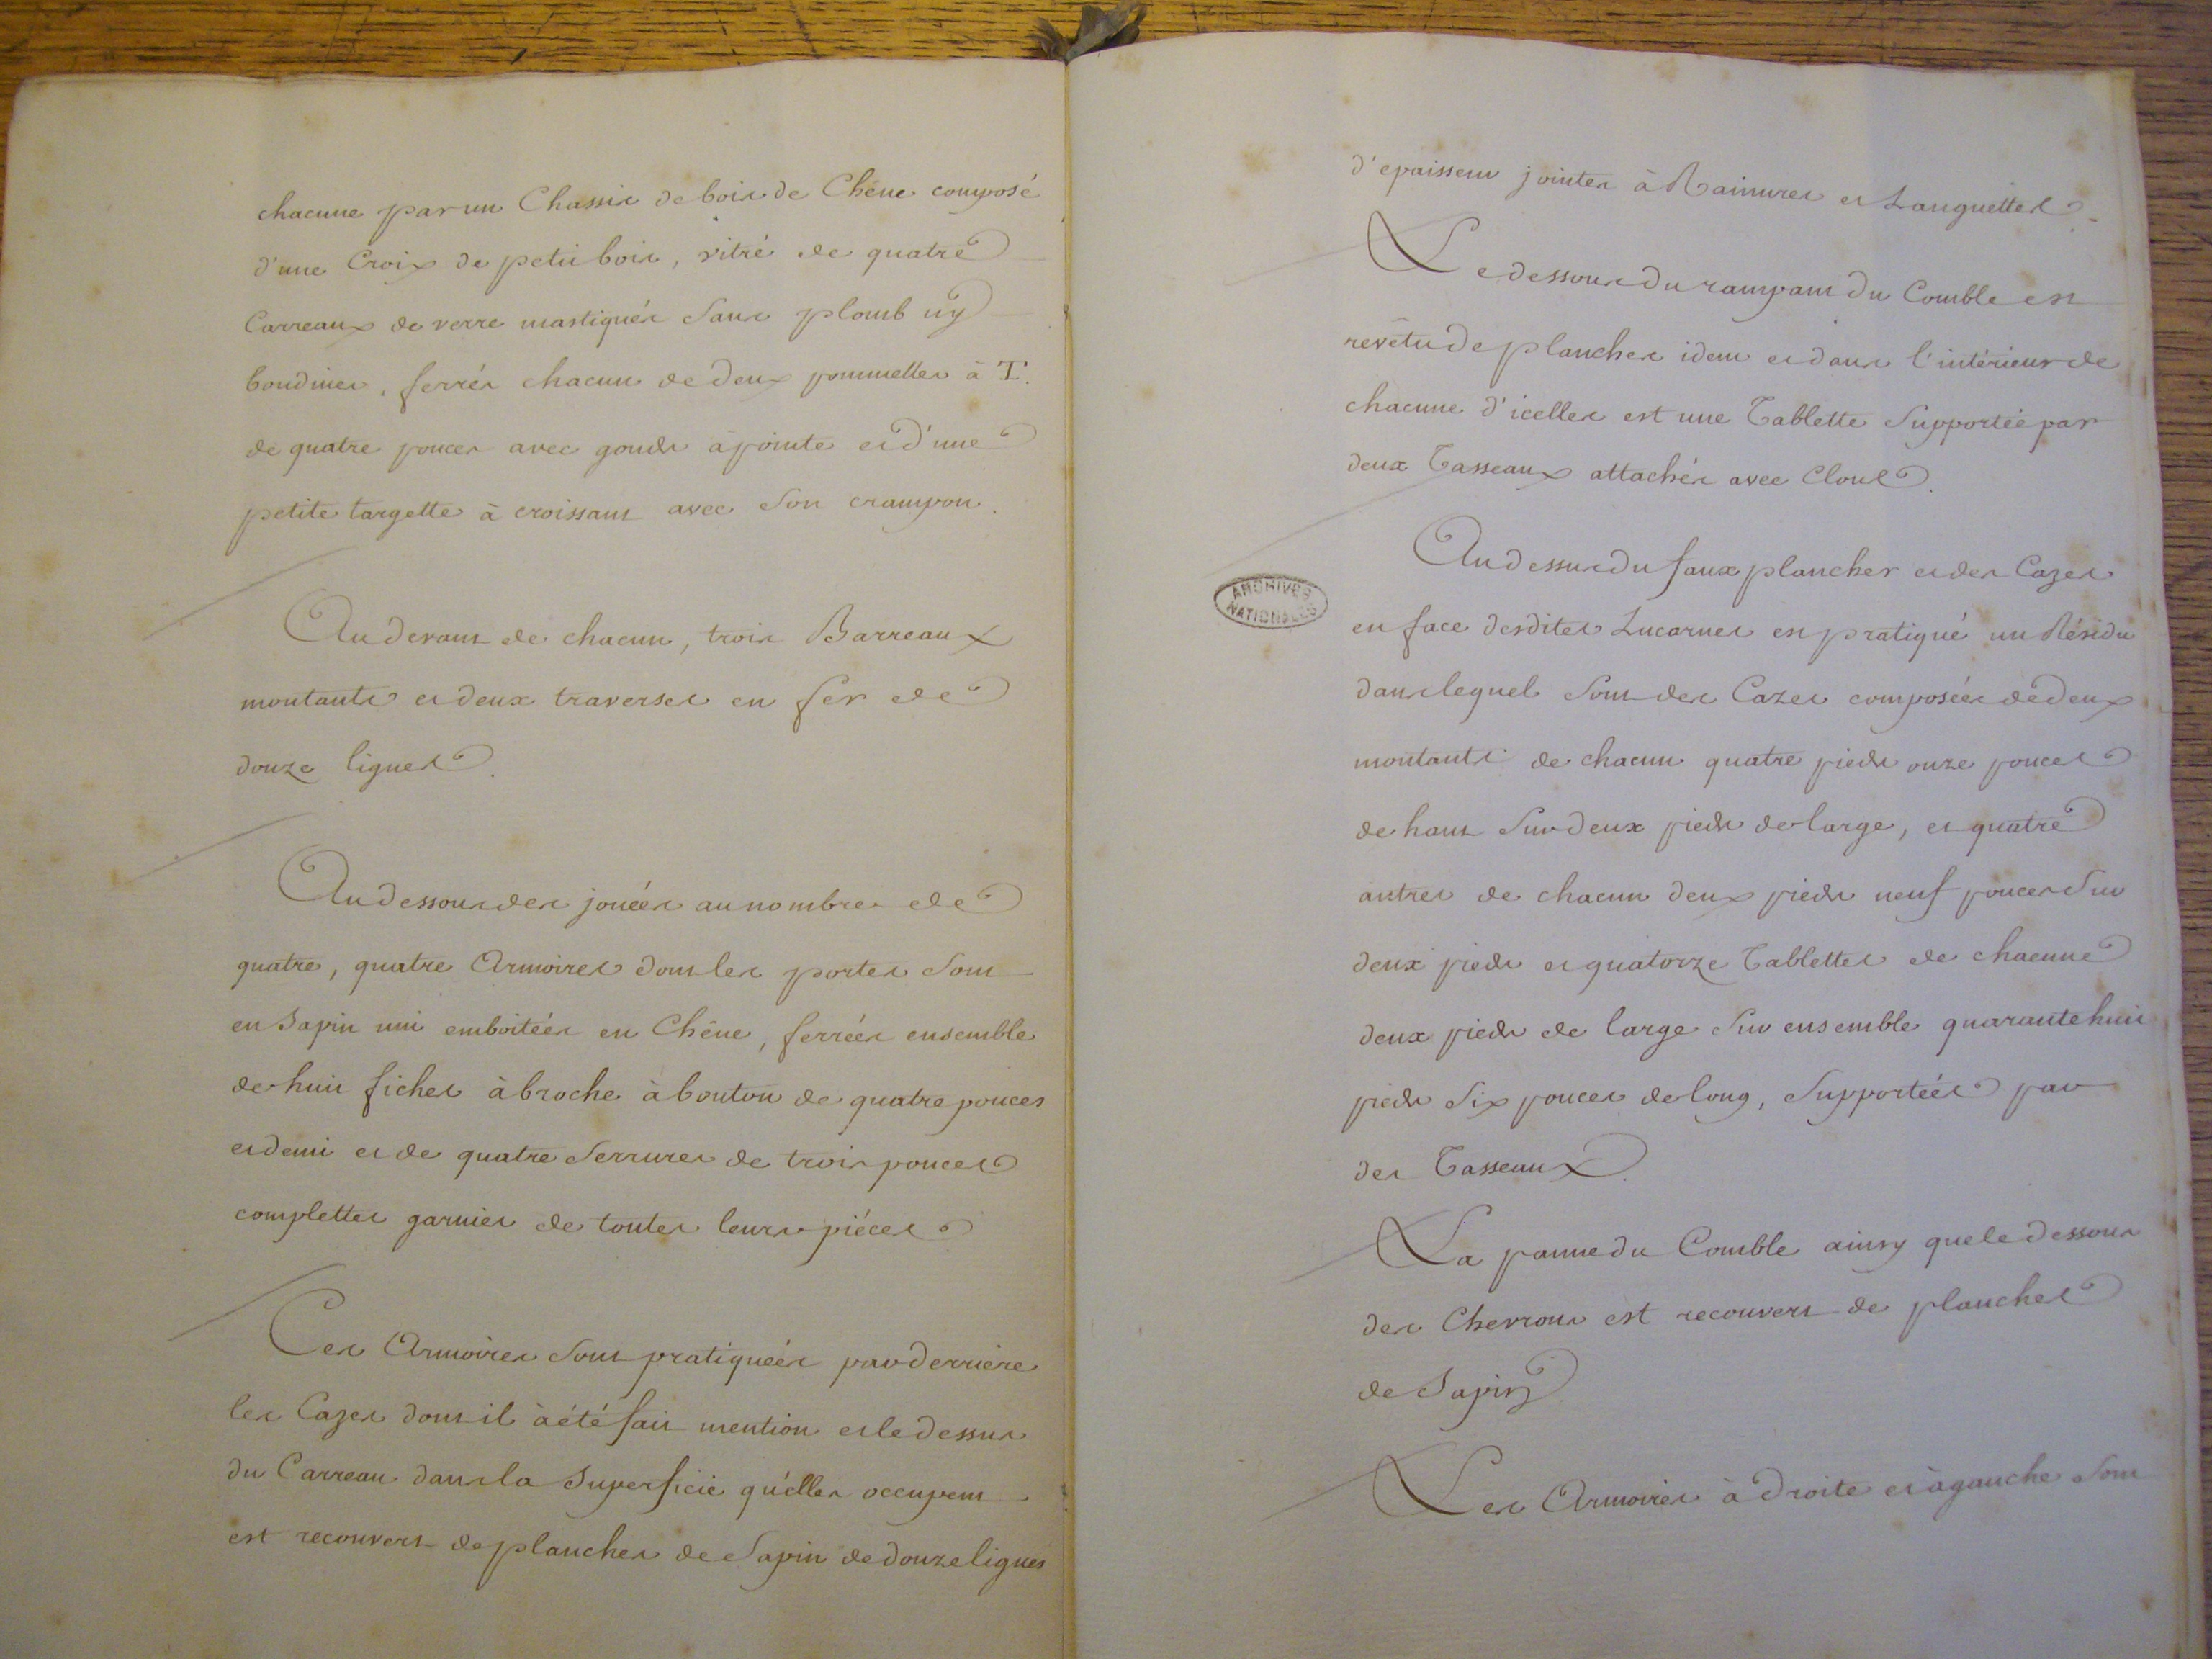 chacune par un Chassis de bois de Chêne composé
d'une Croix de petit bois, vitré de quatre
Carreaux de verre mastiqués Sans plomb ny
boudines, ferrés chacun de deux pommelles à T.
de quatre pouces avec gonds à pointe et d'une
petite targette à croissant avec Son crampon.
Au devant de chacun, trois Barreaux
montants et deux traverses en fer de
douze lignes.
Au dessous des jouées au nombre de
quatre, quatre Armoires dont les portes Sont
en Sapin uni emboitées en Chêne, ferrées ensemble
de huit fiches à broche à bouton de quatre pouces
et demi et de quatre Serrures de trois pouces
complettes garnies de toutes leurs piéces
Ces Armoires Sont pratiquées par derriere
les Cazes dont il à été fait mention et le dessus
du Carreau dans la Superficie qu'elles occupent
est recouvert de planches de Sapin de douze lignes
d'epaisseur jointes à Rainures et Languettes.
Le dessous du rampant du Comble est
revêtu de planches idem et dans l'intérieur de
chacune d'icelles est une Tablette Supportée par
deux Tasseaux attachés avec Clous.
Au dessus du faux plancher et des Cazes
en face desdites Lucarnes est pratiqué un Résidu
dans lequel Sont des Cazes composées de deux
montants de chacun quatre pieds onze pouces
de haut Sur deux pieds de large, et quatre
autres de chacun deux pieds neuf pouces Sur
deux pieds et quatorze Tablettes de chacune
deux pieds de large Sur ensemble quarante huit
pieds Six pouces de long, Supportées par
des Tasseaux.
La panne du Comble ainsy que le dessous
des Chevrons est recouvert de planches
de Sapin.
Les Armoires à droite et à gauche Sont
ARCHIVES
NATIONALES